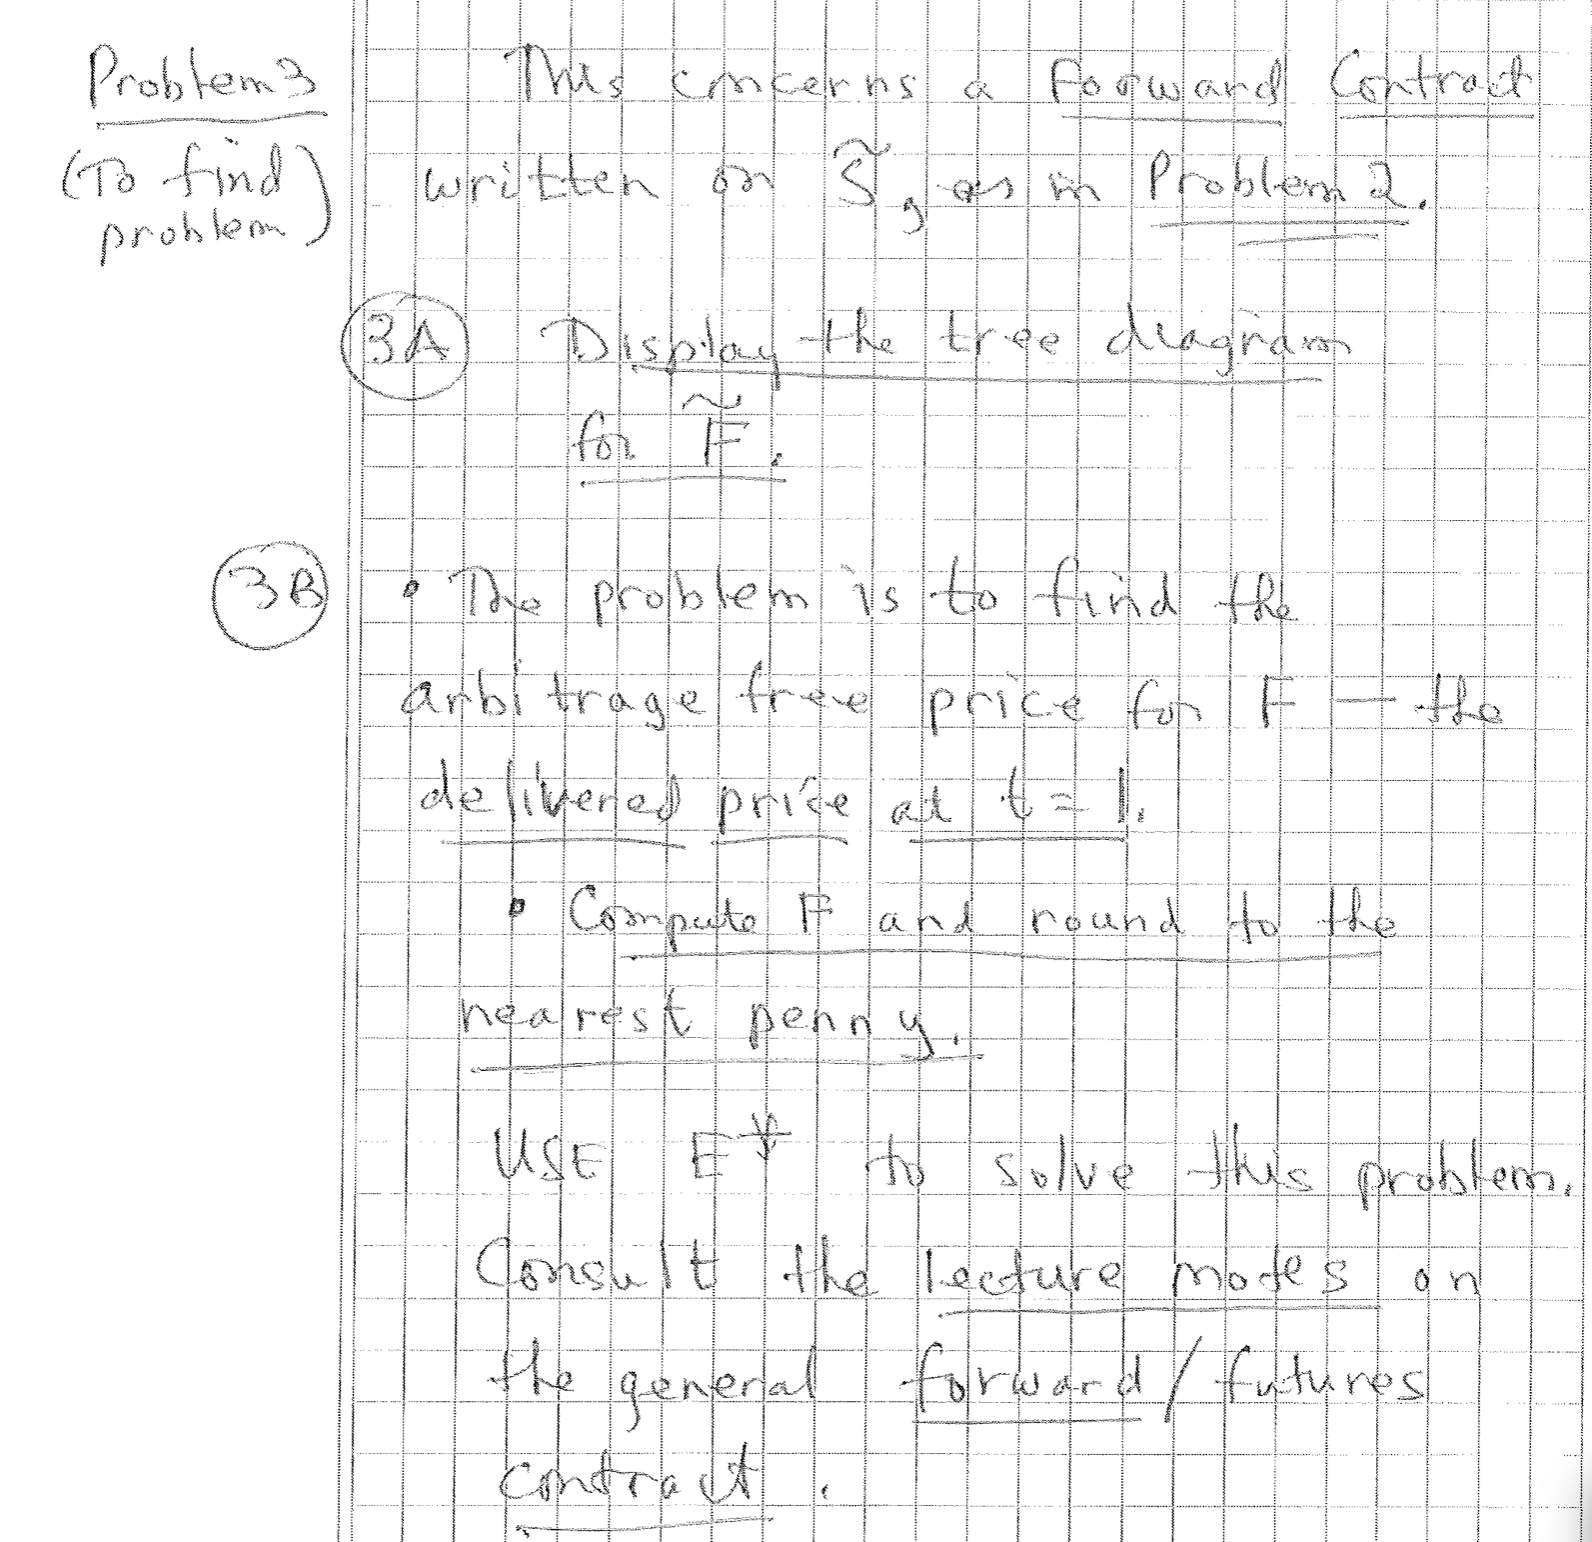 Problem 3
(To find problem)
This concerns a Forward Contract
written on S̃, as in Problem 2.
3A Display the tree diagram
for F̃.
3B • The problem is to find the
arbitrage free price for F — the
delivered price at t = 1.
• Compute F and round to the
nearest penny.
USE E* to solve this problem.
Consult the lecture notes on
the general forward / futures
contract.